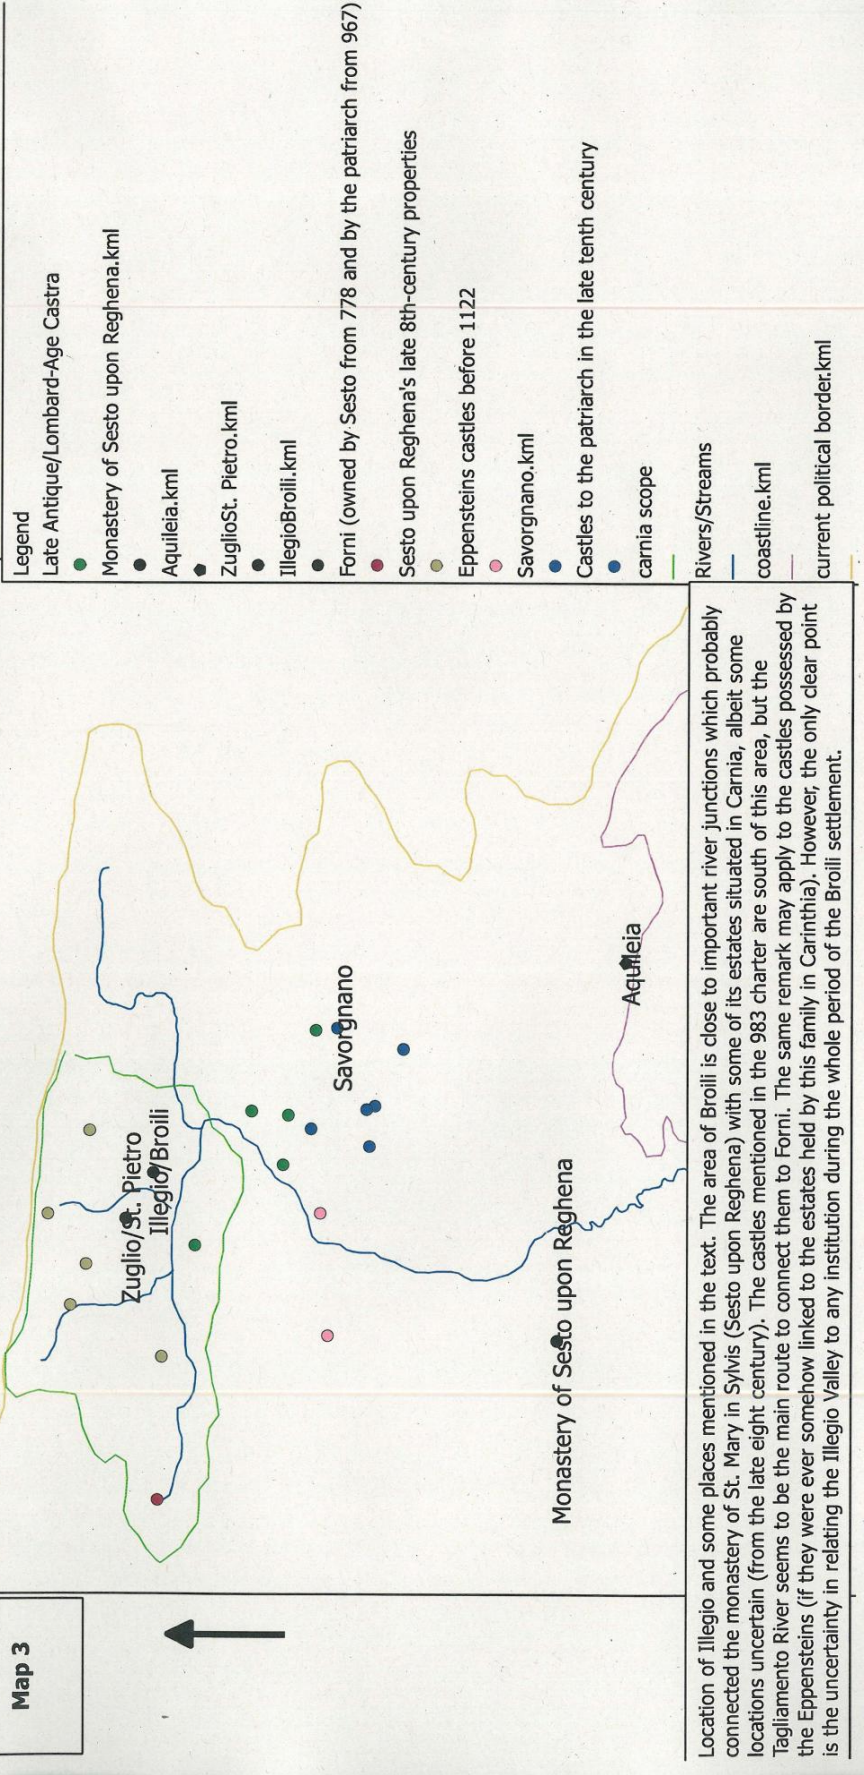 Map 3
Zuglio/St. Pietro
Illegio/Broili
Savorgnano
Monastery of Sesto upon Reghena
Aquileia
Legend
Late Antique/Lombard-Age Castra
Monastery of Sesto upon Reghena.kml
Aquileia.kml
ZuglioSt. Pietro.kml
IllegioBroili.kml
Forni (owned by Sesto from 778 and by the patriarch from 967)
Sesto upon Reghena's late 8th-century properties
Eppensteins castles before 1122
Savorgnano.kml
Castles to the patriarch in the late tenth century
carnia scope
Rivers/Streams
coastline.kml
current political border.kml
Location of Illegio and some places mentioned in the text. The area of Broili is close to important river junctions which probably
connected the monastery of St. Mary in Sylvis (Sesto upon Reghena) with some of its estates situated in Carnia, albeit some
locations uncertain (from the late eight century). The castles mentioned in the 983 charter are south of this area, but the
Tagliamento River seems to be the main route to connect them to Forni. The same remark may apply to the castles possessed by
the Eppensteins (if they were ever somehow linked to the estates held by this family in Carinthia). However, the only clear point
is the uncertainty in relating the Illegio Valley to any institution during the whole period of the Broili settlement.